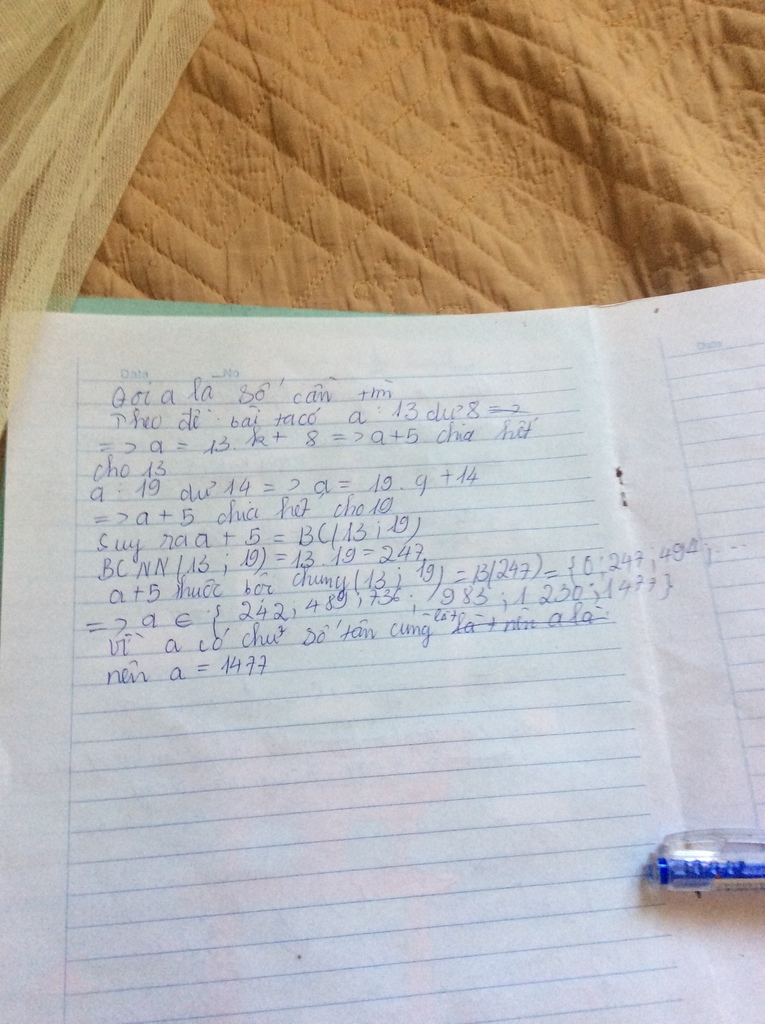 Gọi a là số cần tìm
Theo đề bài ta có a : 13 dư 8 =>
=> a = 13.k + 8 => a+5 chia hết
cho 13
a : 19 dư 14 => a = 19.q +14
=> a + 5 chia hết cho 19
Suy ra a + 5 = BC(13 ; 19)
BCNN(13 ; 19) = 13.19 = 247
a+5 thuộc bội chung(13 ; 19) = B(247) = {0;247;494;...
=> a ∈ { 242; 489; 736; 983; 1 230; 1477}
Vì a có chữ số tận cùng là 7
nên a = 1477